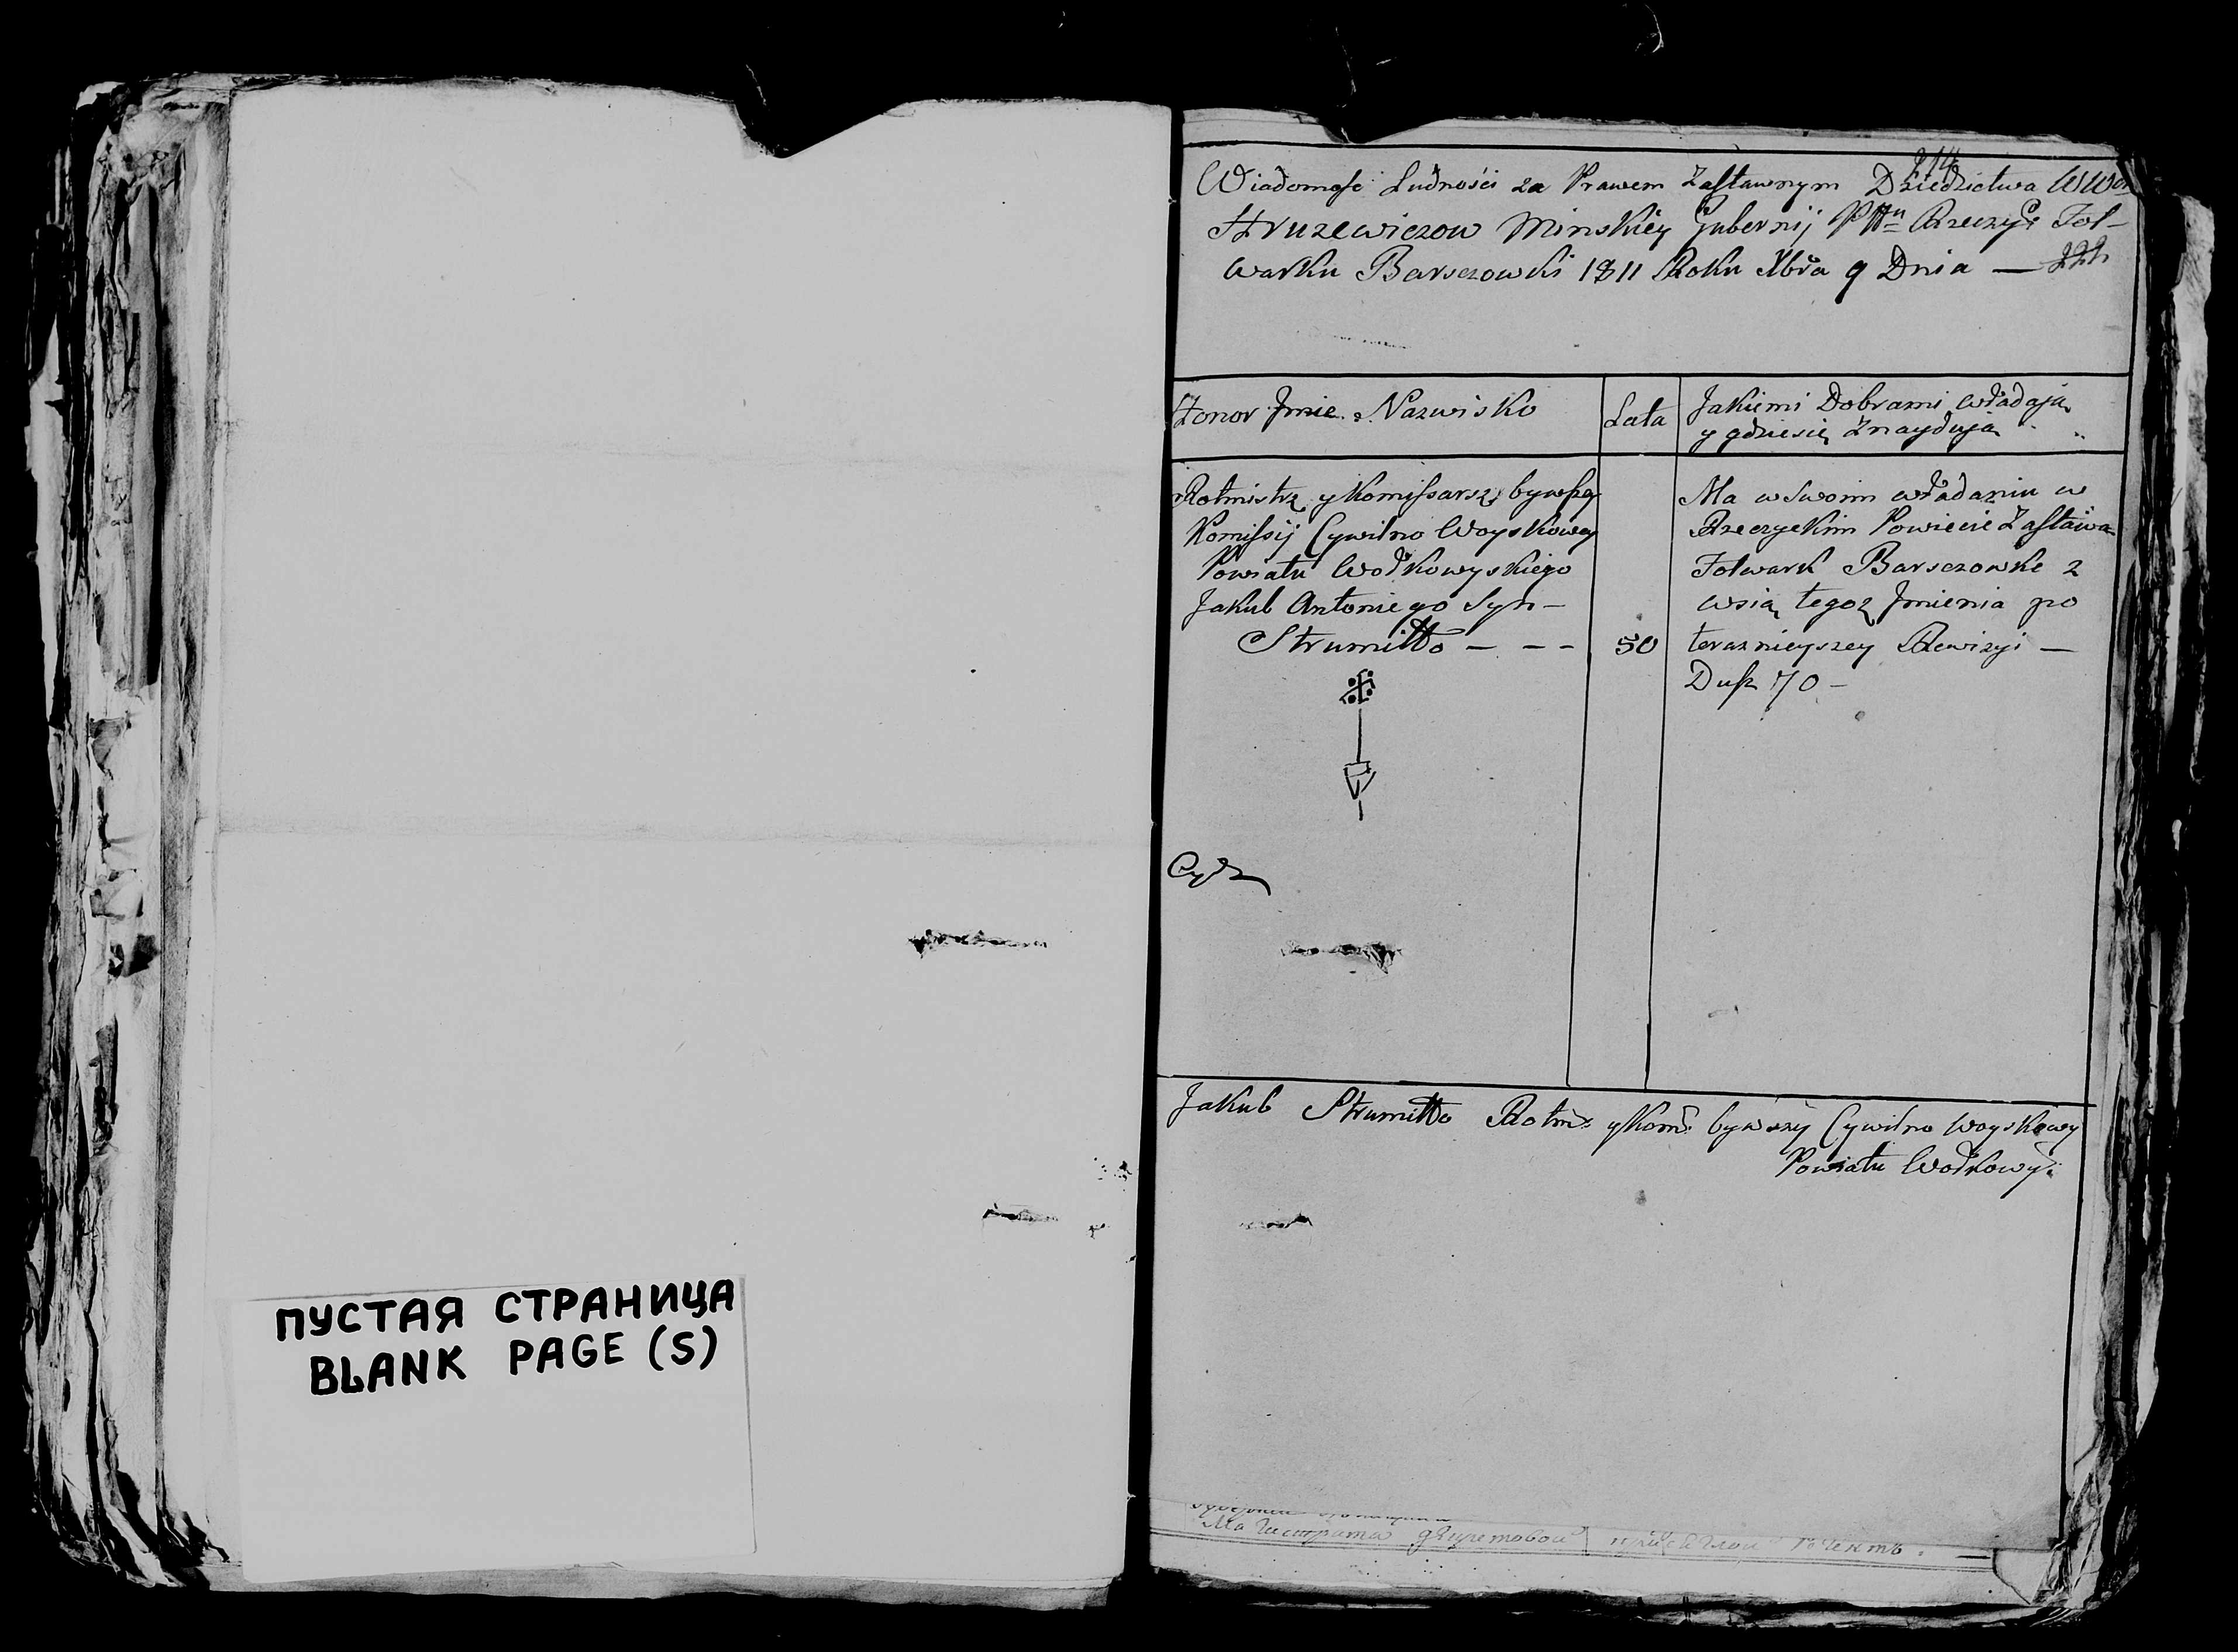 ПУСТАЯ СТРАНИЦА
BLANK PAGE (S)
214
Wiadomość Ludności za Prawem Zastawnym Dziedzictwa
Hruzewiczow Minskiey Gubernij Fol-
warku Barsczowki 1811 Roku Xbra 9 Dnia — 222
Honor Jmie Nazwisko
Lata
Jakiemi Dobrami władają
y gdziesię Znayduią
Rotmistrz y Komissarz bywszey
Komissij Cywilno Woyskowey
Powiatu Wołkowyskiego
Jakub Antoniego Syn —
Strumiłło — — —
50
Ma w Swoim władaniu w
Rzeczyckim Powiecie Zastawą
Folwark Barsczowke z
wsią tegoż Jmienia po
teraznieyszey Rewizyi —
Dusz 70 —
Jakub Strumiłło Rotm: y Kom: bywszy Cywilno Woyskowy
Powiatu Wołkowy: